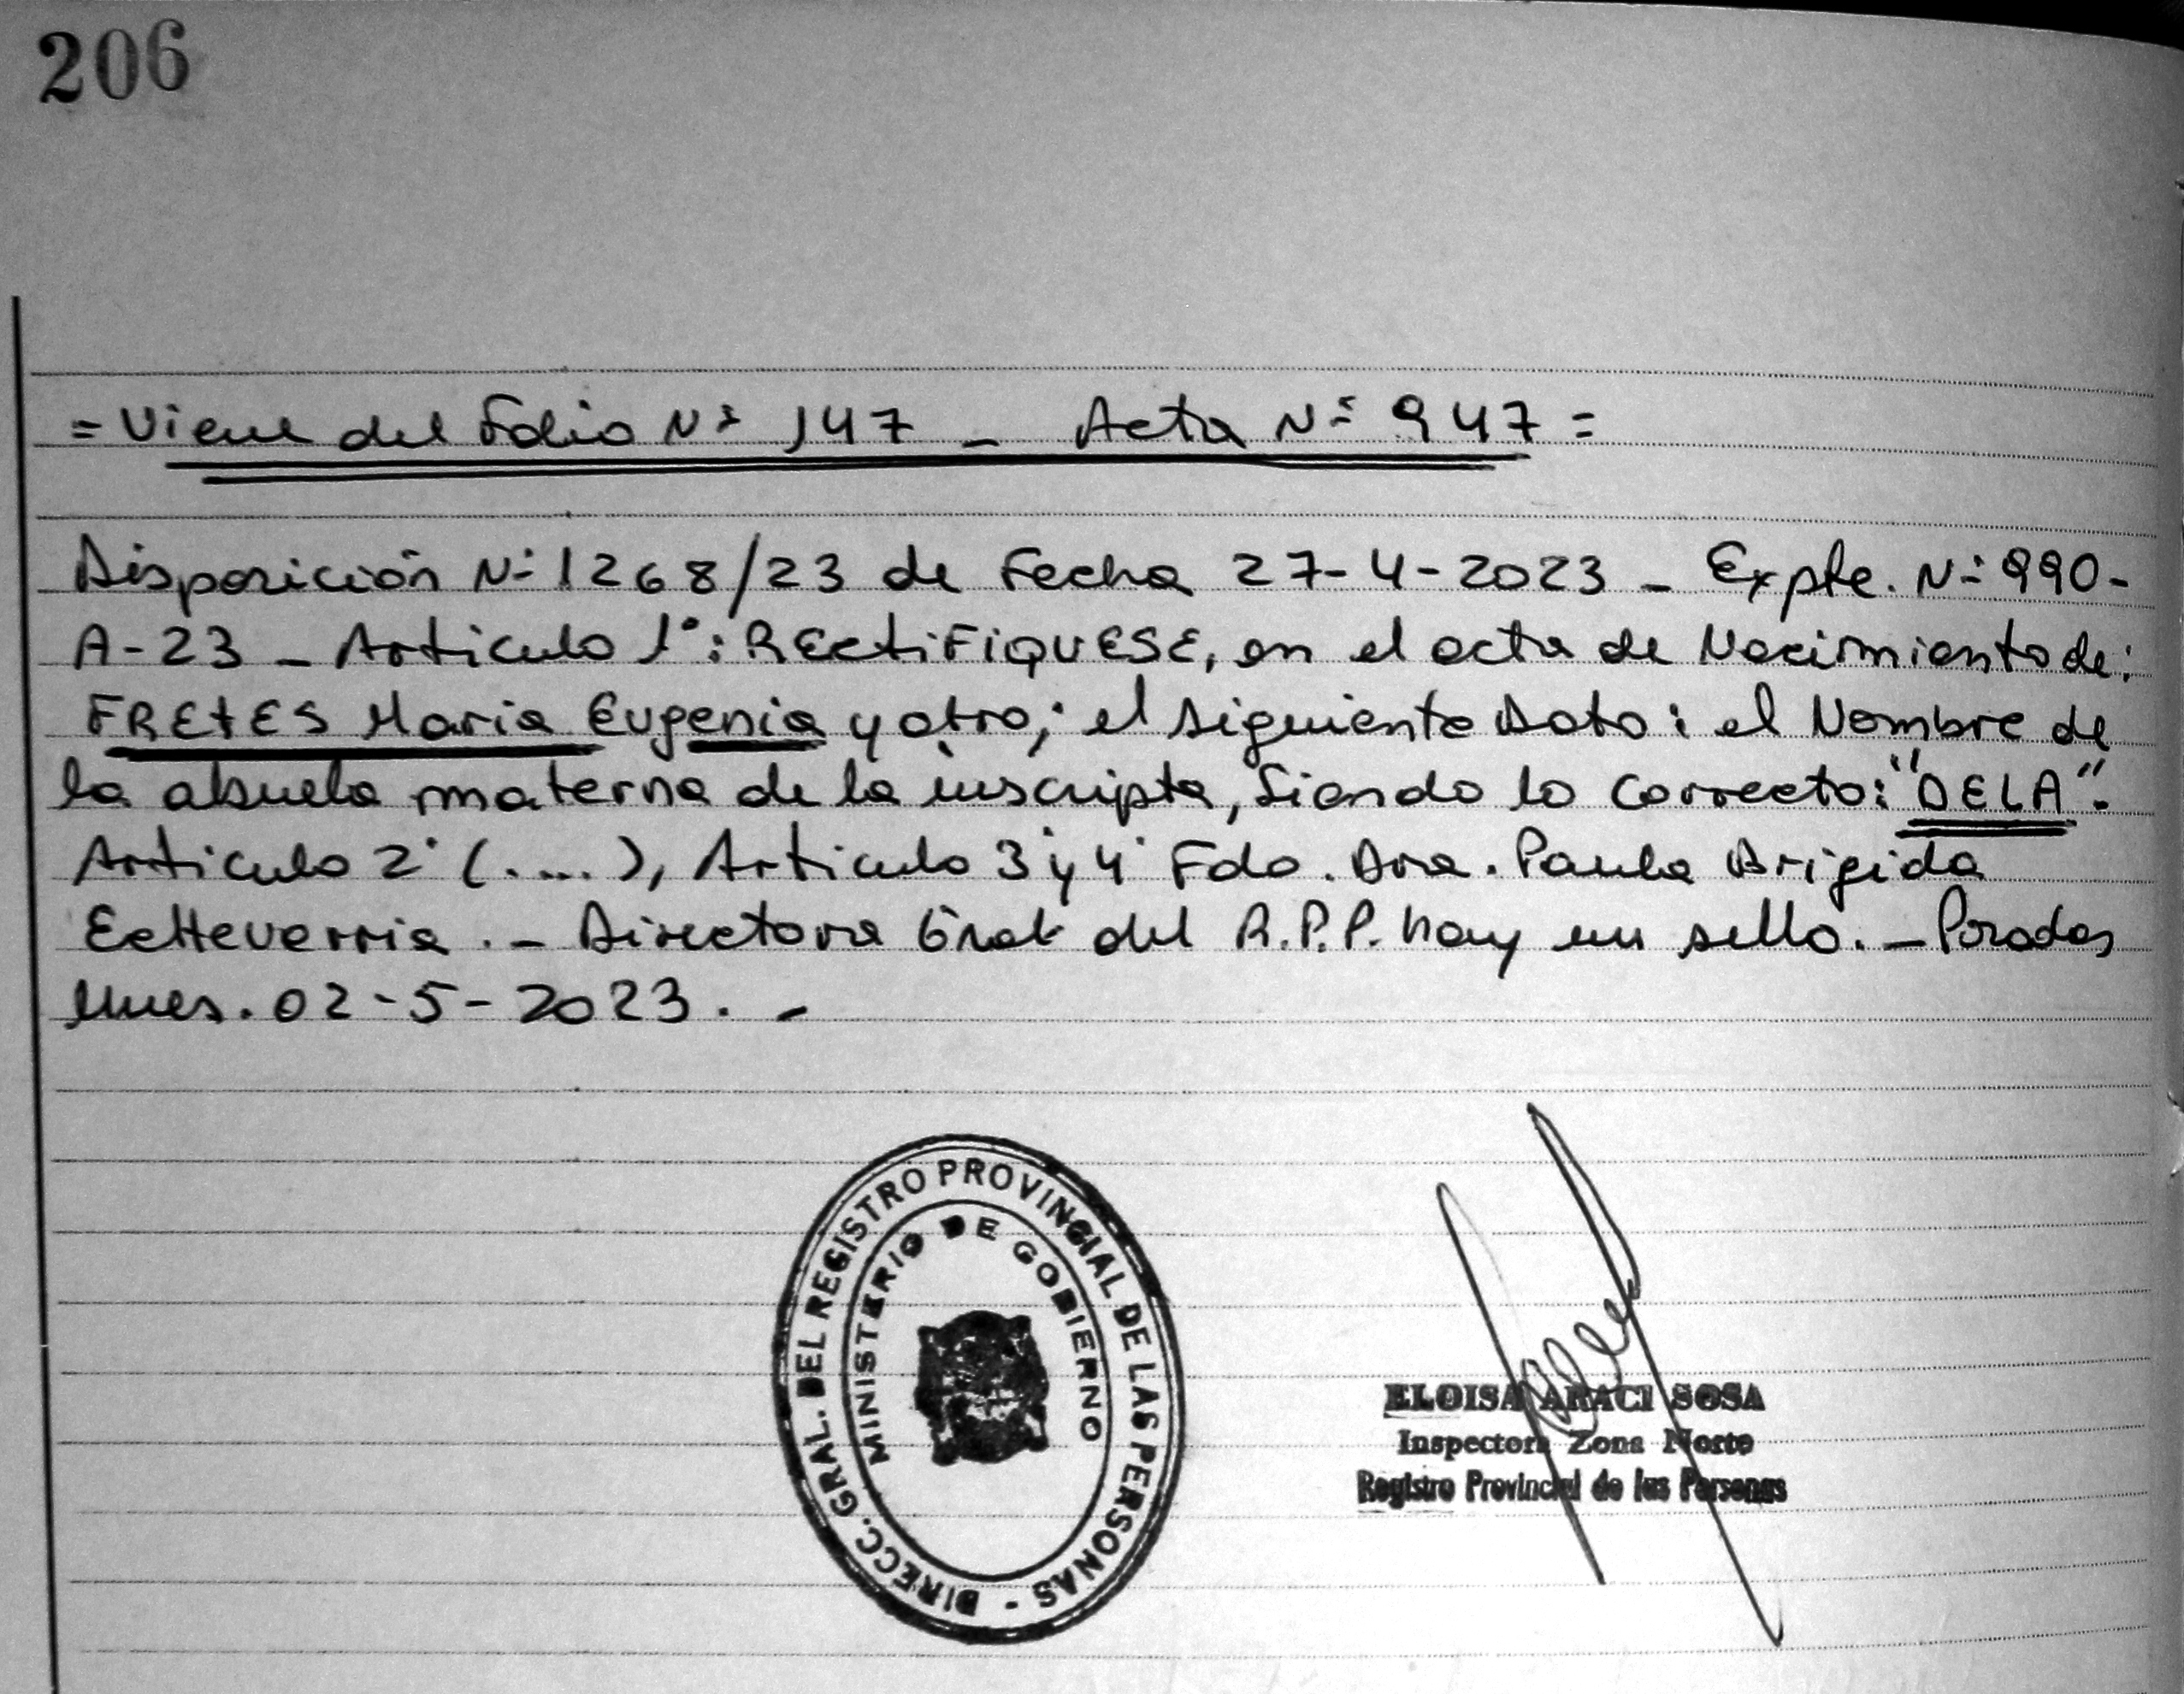 206
= Viene del Folio Nº 147 - Acta Nº 947 =
Disposición Nº 1268/23 de Fecha 27-4-2023 - Expte. Nº 990-
A-23 - Articulo 1º: RECtiFiQUESE, en el acta de Nacimiento de:
FREtES Maria Eugenia y otro; el siguiente Dato: el Nombre de
la abuela materna de la inscripta, Siendo lo Correcto: "DELA".
Articulo 2º (....), Articulo 3 y 4º Fdo. Dra. Paula Brigida
EcHeverria. - Directora Gral del R.P.P. hay un sello. - Posadas
Mnes. 02-5-2023. -
DIRECC. GRAL. DEL REGISTRO PROVINCIAL DE LAS PERSONAS -
MINISTERIO DE GOBIERNO
ELOISA ARACI SOSA
Inspectora Zona Norte
Registro Provincial de las Personas